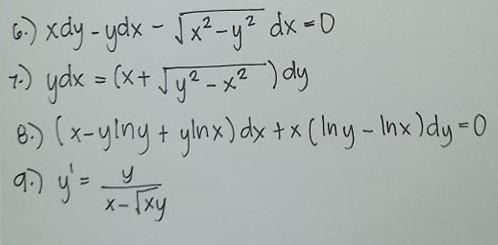 6.) xdy - ydx - √(x² - y²) dx = 0
7.) ydx = (x + √(y² - x²)) dy
8.) (x - ylny + ylnx) dx + x (lny - lnx) dy = 0
9.) y' = y / (x - √xy)